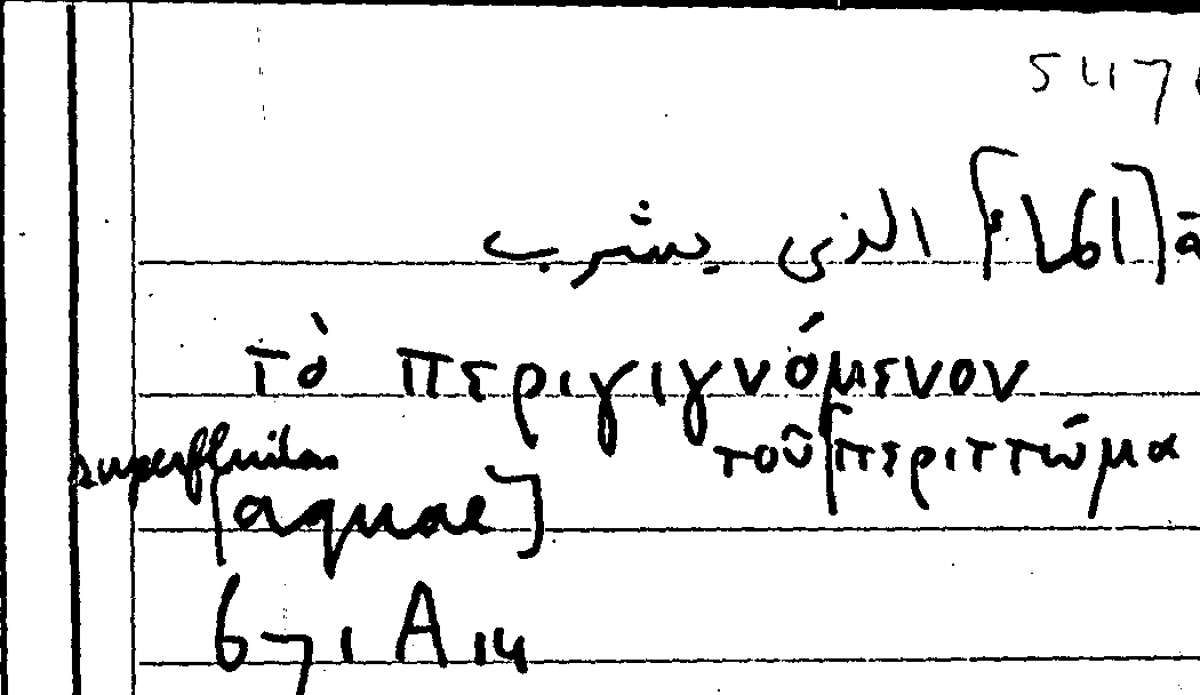 547
[الماء] الذي يشرب
τὸ περιγιγνόμενον
τοῦ [περιττώμα
superfluitas
[aquae]
671 A 14